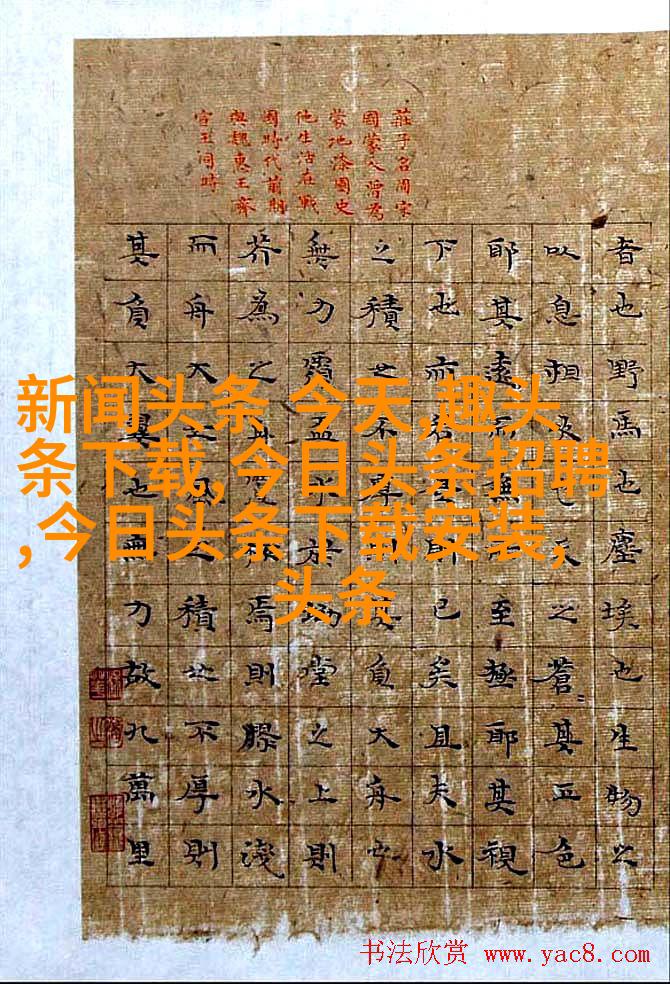 莊子名周宋
國蒙人曾為
蒙地漆園史
他生活在戰
國時代前期
與魏惠王齊
宣王同時
者也野馬也塵埃也生物之
以息相吹也天之蒼〻其正色
耶其遠而無所至極耶其視
下也亦若是則已矣且夫水
之積也不厚則負大舟也
無力覆盃水於坳堂之上則
芥為之舟置杯焉則膠水淺
而舟大也風之積也不厚則
其負大翼也無力故九萬里
新闻头条 今天,趣头
条下载,今日头条招聘
,今日头条下载安装,
头条
书法欣赏 www.yac8.com